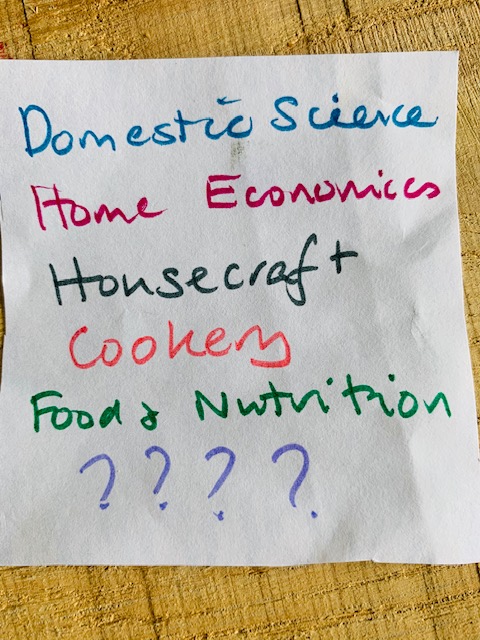 Domestic Science
Home Economics
Housecraft
Cookery
Food & Nutrition
? ? ? ?